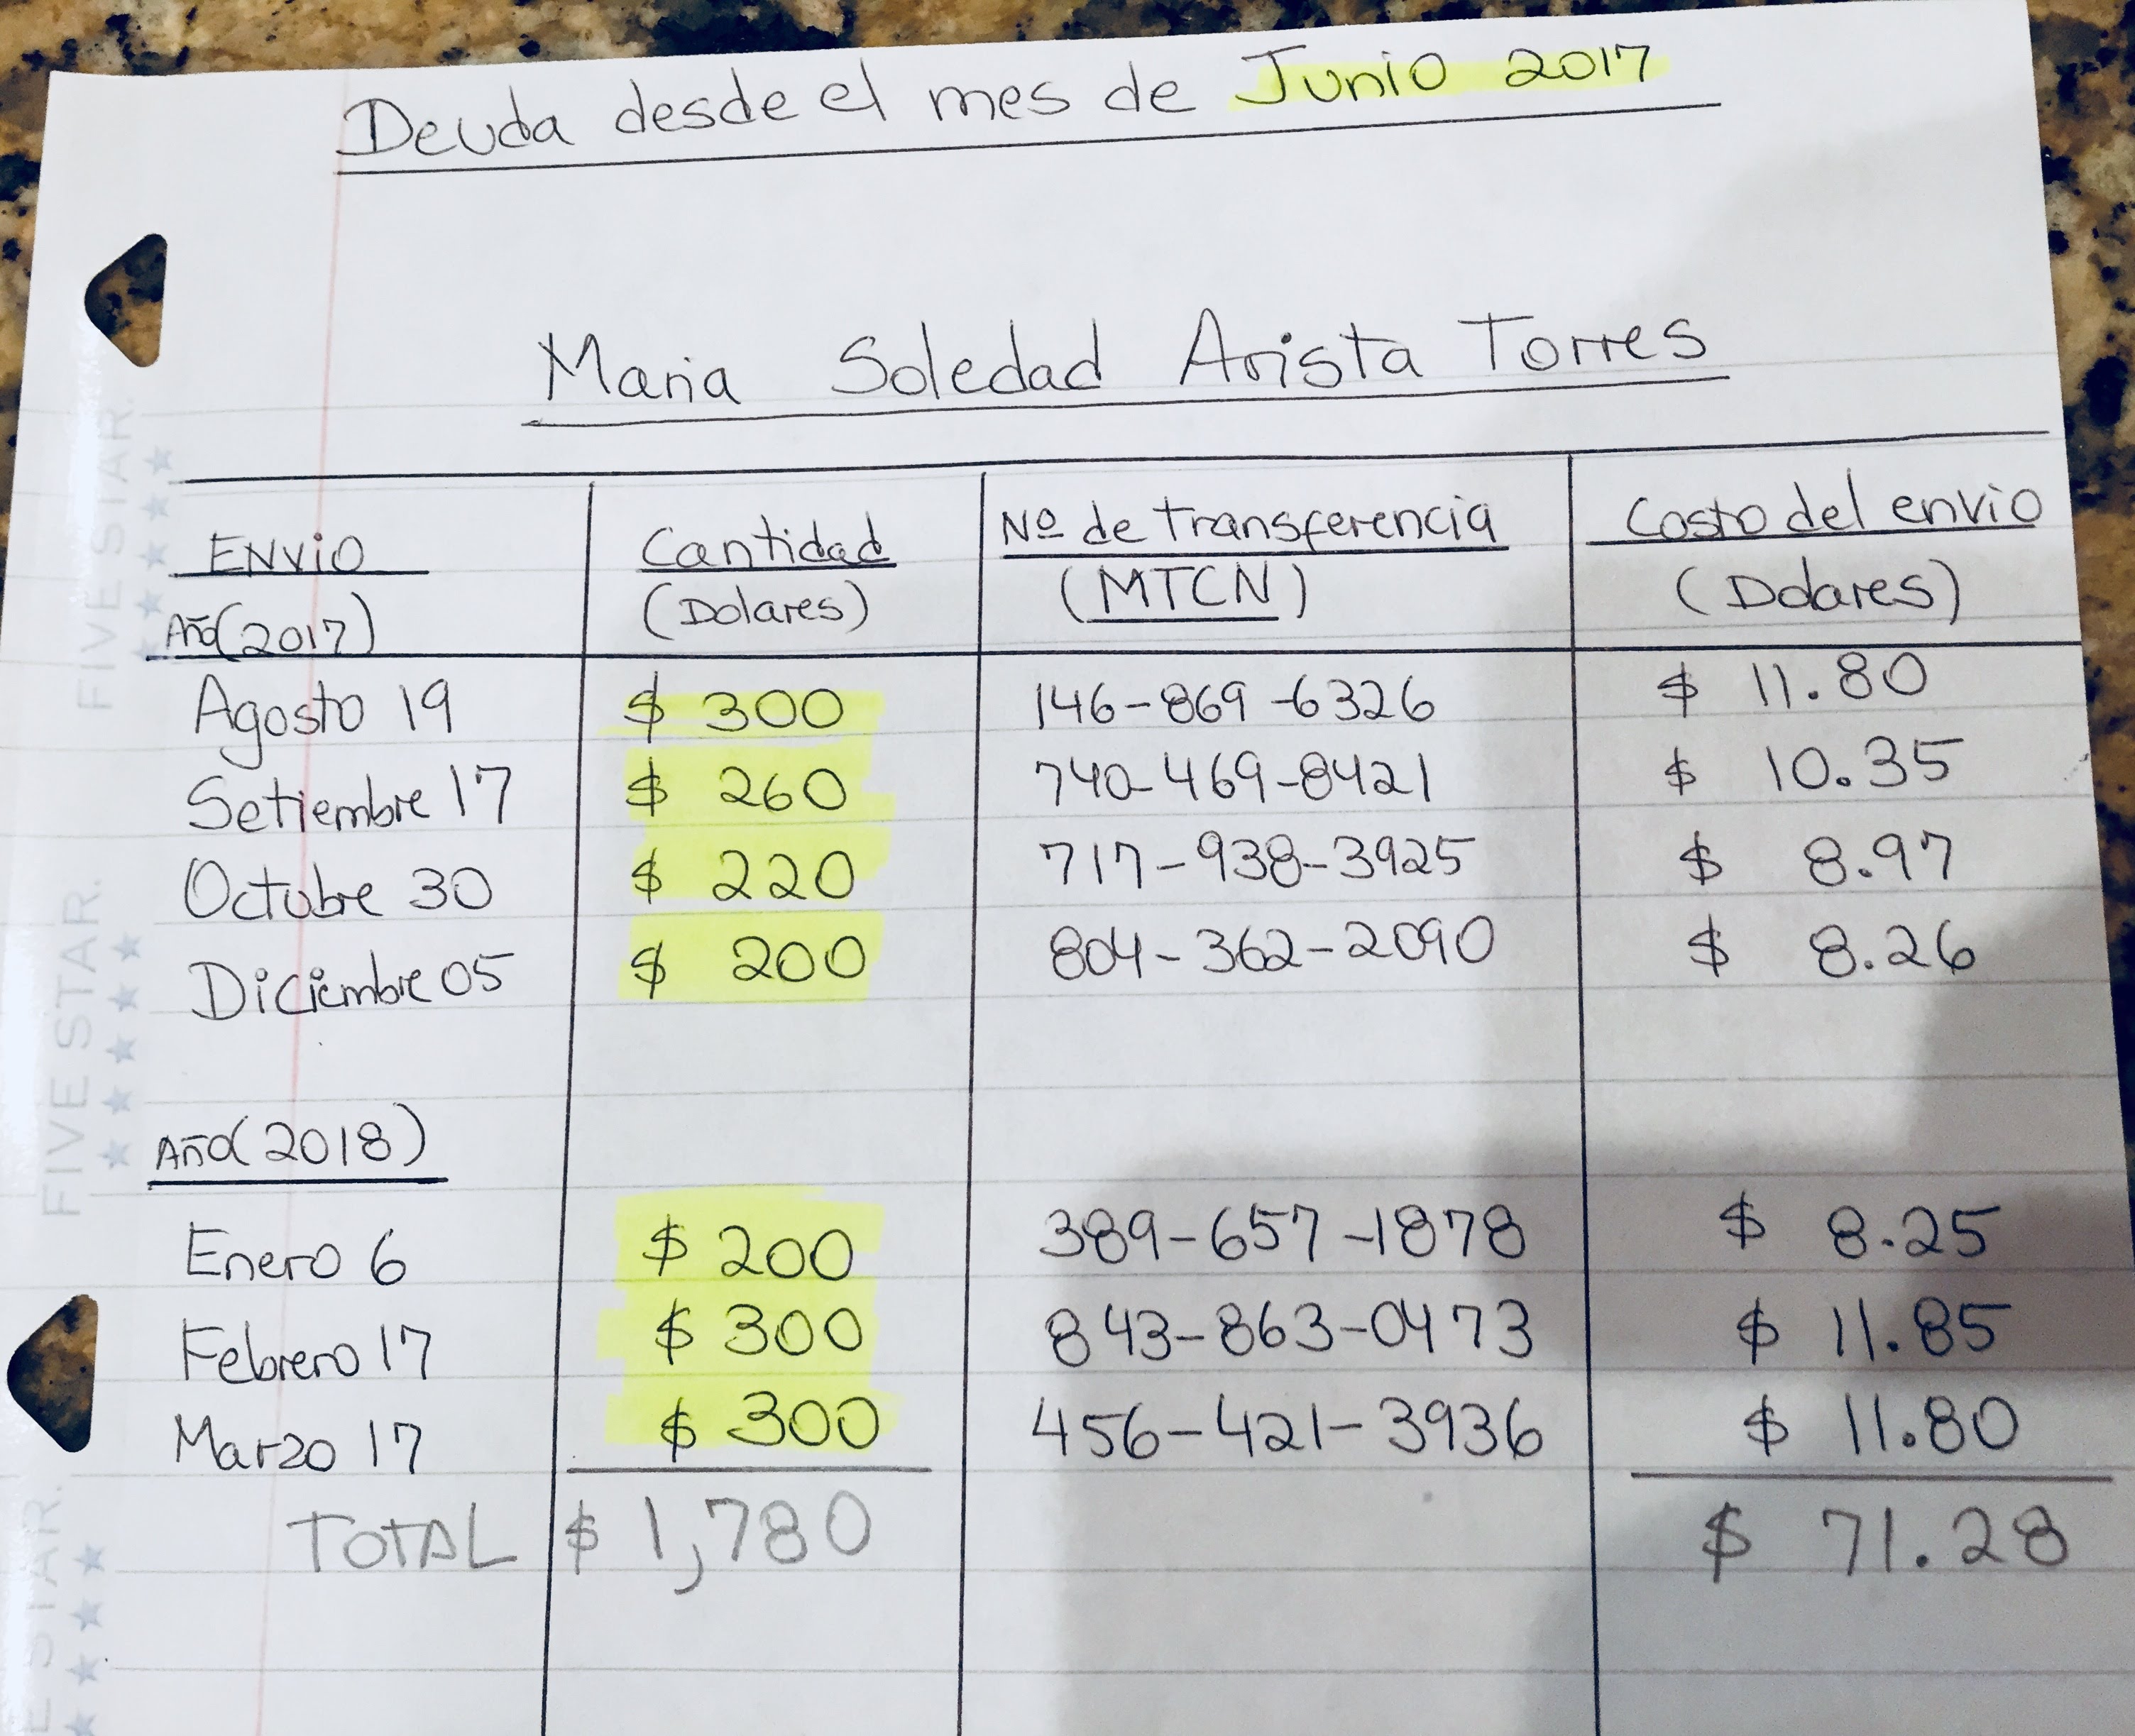 Deuda desde el mes de Junio 2017
Maria Soledad Arista Torres
ENViO Cantidad Nº de transferencia Costo del envio
Año(2017) (Dolares) (MTCN) (Dolares)
Agosto 19 $ 300 146-869-6326 $ 11.80
Setiembre 17 $ 260 740-469-8421 $ 10.35
Octubre 30 $ 220 717-938-3925 $ 8.97
Diciembre 05 $ 200 804-362-2090 $ 8.26
Año(2018)
Enero 6 $ 200 389-657-1878 $ 8.25
Febrero 17 $ 300 843-863-0473 $ 11.85
Marzo 17 $ 300 456-421-3936 $ 11.80
TOTAL $ 1,780 $ 71.28
FIVE STAR.
FIVE STAR.
E STAR.